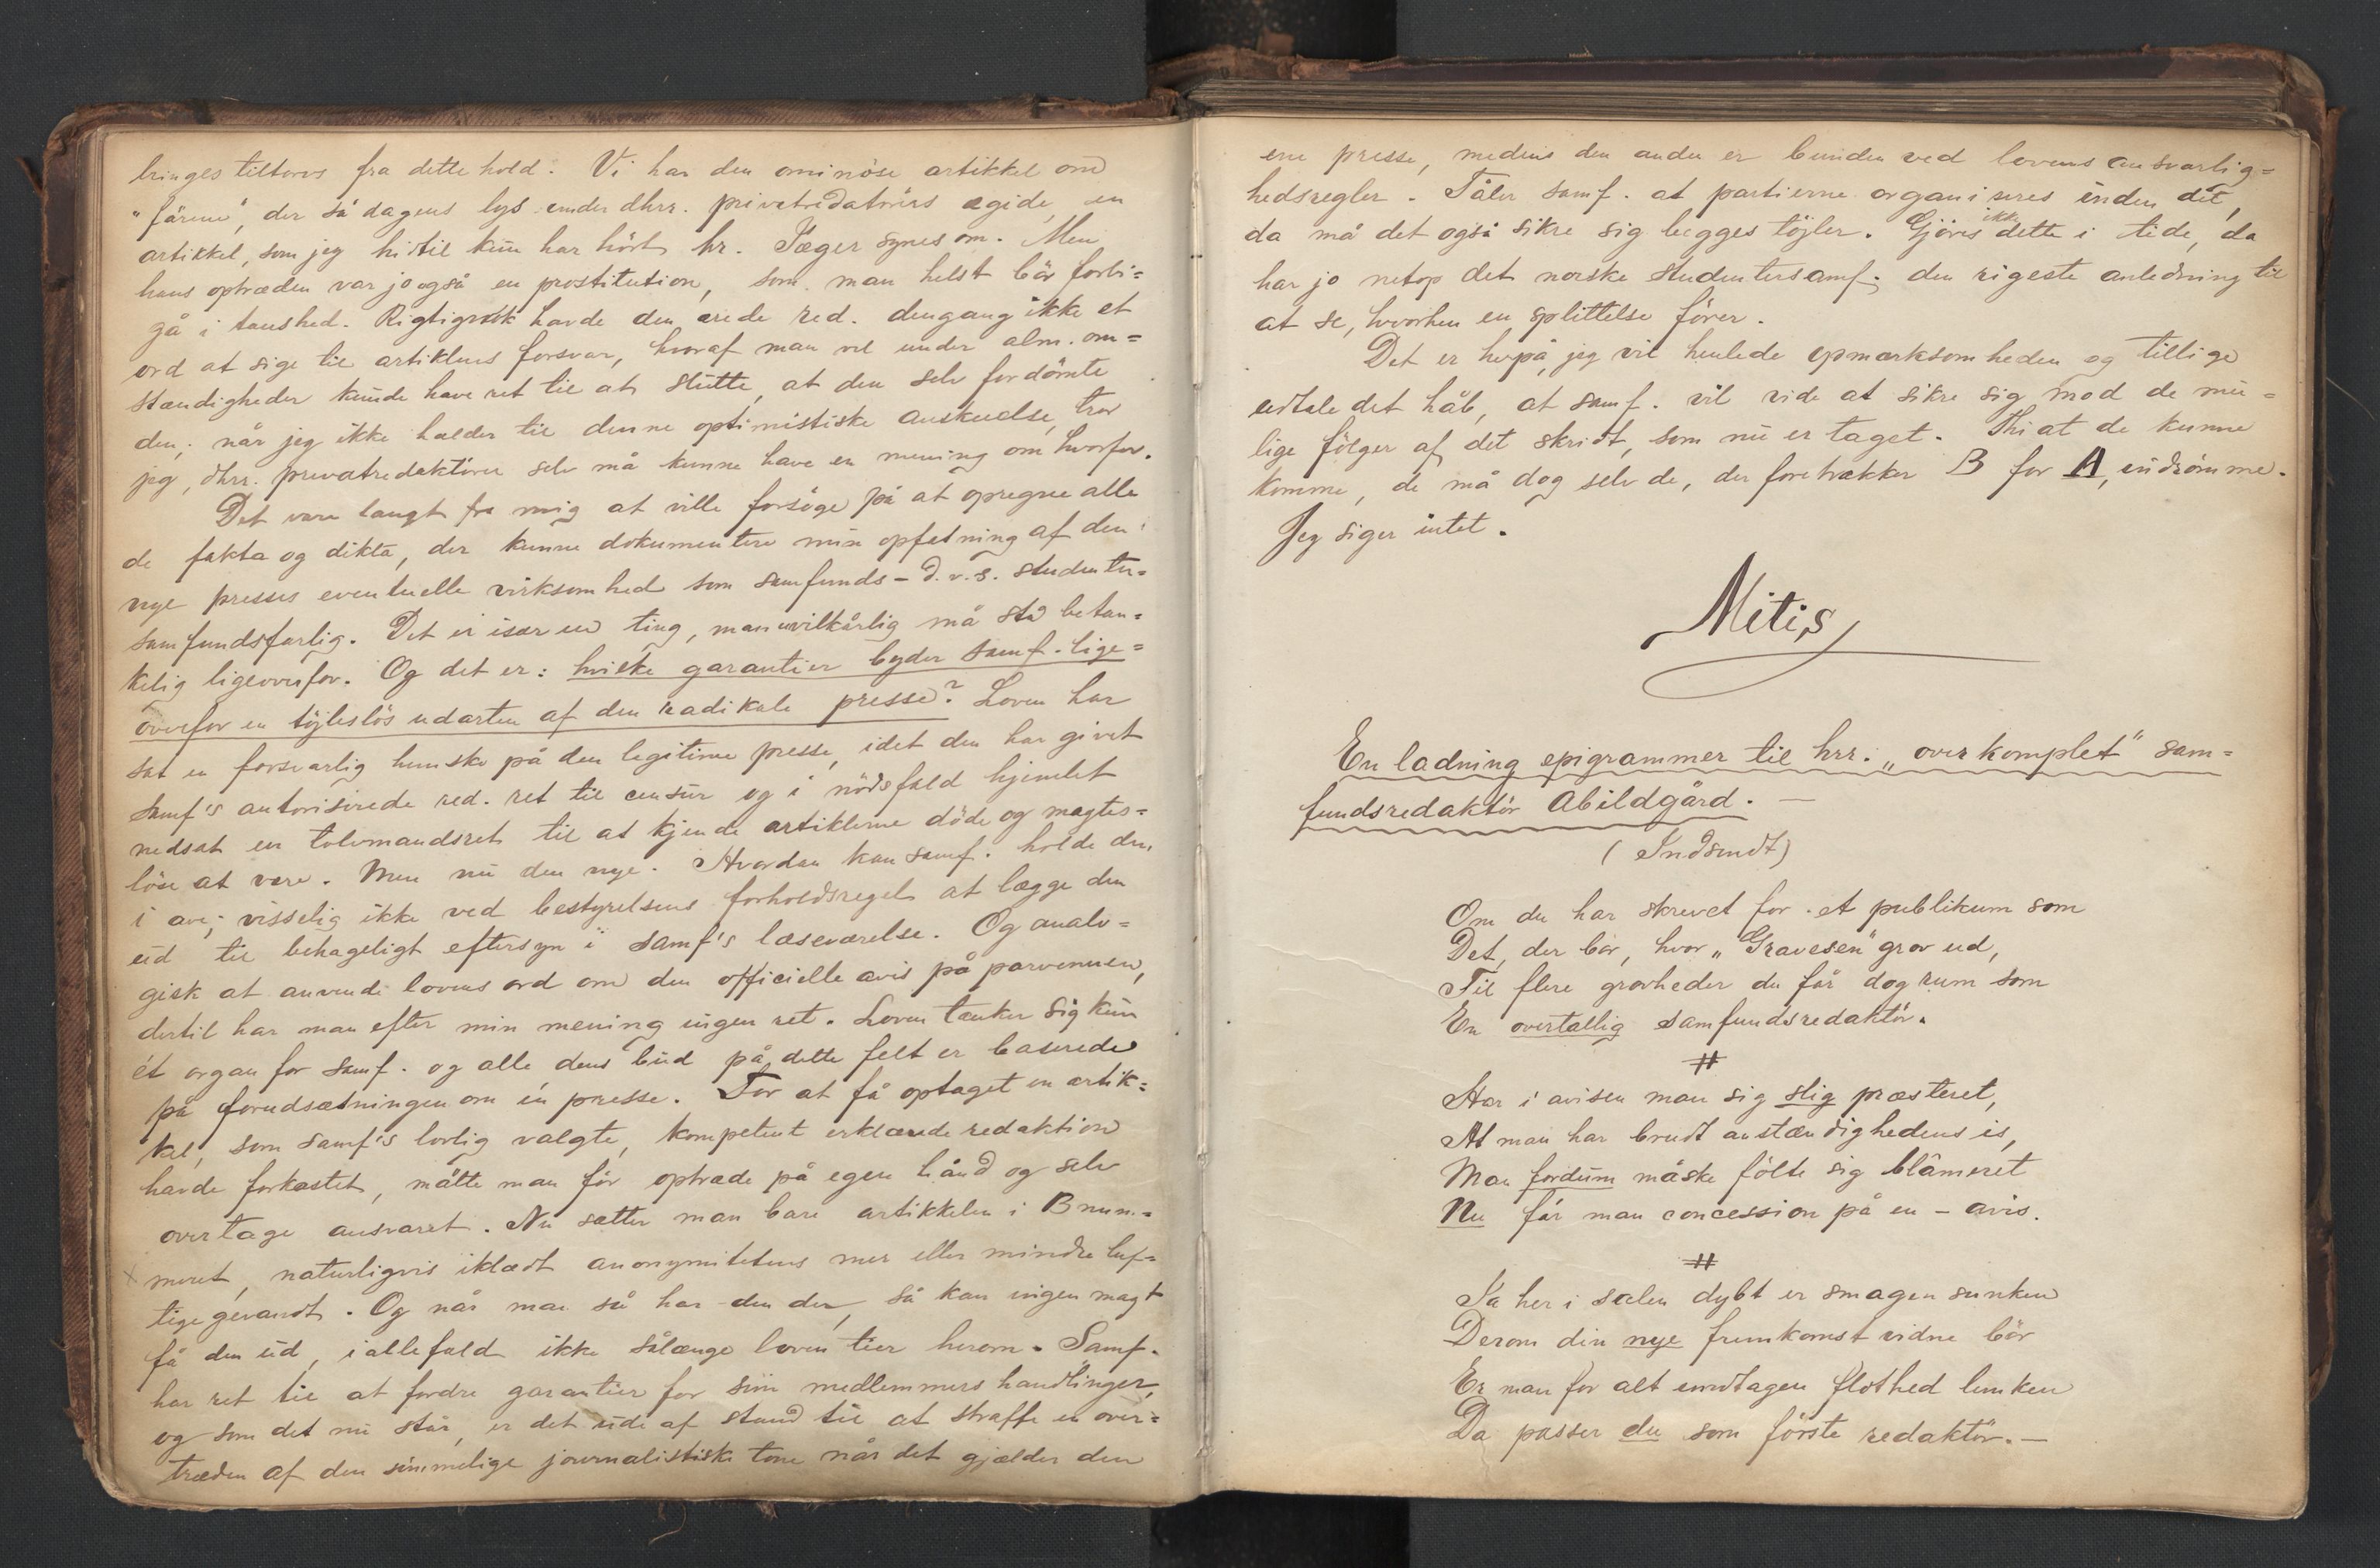 bringes tiltorvs fra dette hold. Vi har den ominöse artikkel om
"fårene", der så dagens lys under dhrr. privatredatörs ægide, en
artikkel, som jeg hidtil kun har hört hr. Jæger synes om. Men
hans optræden var jo også en prostitution, som man helst bör forbi=
gå i taushed. Rigtignok havde den ærede red. dengang ikke et
ord at sige til artiklens forsvar, hvoraf man vel under alm. om=
stændigheder kunde have ret til at slutte, at den selv fordömte
den; når jeg ikke holder til denne optimistiske anskuelse, tror
jeg, dhrr. privatredaktörer selv må kunne have en mening om hvorfor.
Det være langt fra mig at ville forsöge på at opregne alle
de fakta og dikta, der kunne dokumentere min opfatning af den
nye presses eventuelle virksomhed som samfunds - d.v.s. studenter=
samfundsfarlig. Det er især en ting, man uvilkårlig må stå betæn=
kelig ligeoverfor. Og det er: hvilke garantier byder samf. lige=
overfor en töjleslös udarten af den radikale presse? Loven har
sat en forsvarlig hemsko på den legitime presse, idet den har givet
samf's autoriserede red. ret til censur og i nödsfald hjemlet
nedsat en tolvmandsret til at kjende artiklerne döde og magtes=
löse at være. Men nu den nye. Hvordan kan samf. holde den
i ave; visselig ikke ved bestyrelsens forholdsregel at lægge den
ud til behageligt eftersyn i samf's læseværelse. Og analo=
gisk at anvende lovens ord om den officielle avis på parvenuen,
dertil har man efter min mening ingen ret. Loven tænker sig kun
ét organ for samf. og alle dens bud på dette felt er baserede
på forudsætningen om én presse. For at få optaget en artik=
kel, som samf's lovlig valgte, kompetent erklærede redaktion
havde forkastet, måtte man för optræde på egen hånd og selv
overtage ansvaret. Nu sætter man bare artikkelen i B num=
meret, naturligvis iklædt anonymitetens mer eller mindre luf=
tige gevandt. Og når man så har den der, så kan ingen magt
få den ud, iallefald ikke sålænge loven tier herom. Samf.
har ret til at fordre garantier for sine medlemmers handlinger,
og som det nu står, er det ude af stand til at straffe en over=
træden af den sömmelige journalistiske tone når det gjælder den
ene presse, medens den anden er bunden ved lovens ansvarlig=
hedsregler. Tåler samf. at partierne organiseres inden det,
da må det også sikre sig begges töjler. Gjöres ikke dette i tide, da
har jo netop det norske studentersamf. den rigeste anledning til
at se, hvorhen en splittelse förer.
Det er herpå, jeg vil henlede opmærksomheden og tillige
udtale det håb, at samf. vil vide at sikre sig mod de mu=
lige fölger af det skridt, som nu er taget. Thi at de kunne
komme, de må dog selv de, der foretrækker B for A, indrömme.
Jeg siger intet.
Mitis
En ladning epigrammer til hrr. „overkomplet" sam=
fundsredaktör Abildgård. —
(Indsendt)
Om du har skrevet for et publikum som
Det, der bör, hvor „Gravesen" grov ud,
Til flere grovheder du får dog rum som
En overtallig samfundsredaktör.
#
Har i avisen man sig slig præsteret,
At man har brudt anstændighedens is,
Man fordum måske fölte sig blâmeret
Nu får man concession på en – avis.
#
Ja her i salen dybt er smagen sunken
Derom din nye fremkomst vidne bör
Er man for alt undtagen flothed lunken
Da passer du som förste redaktör. —